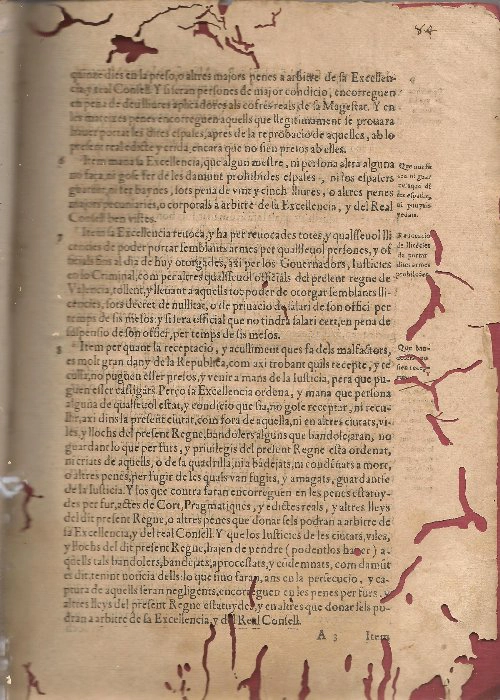 84
quinze dies en la preso, o altres majors penes a arbitre de sa Excellen-
cia, y real Consell. Y si seran persones de major condicio, encorreguen
en pena de deu lliures aplicadores als cofres reals, de sa Magestat. Y en
les mateixes penes encorreguen aquells que llegitimament se prouara
hauer portat les dites espases, apres de la reprobacio de aquelles, ab lo
present real edicte y crida, encara que no sien presos ab elles.
6 Item mana sa Excellencia, que algun mestre, ni persona altra alguna
no faça, ni gose fer de les damunt prohibides espases, ni los espasers
guarnir, ni fer baynes, sots pena de vint y cinch lliures, o altres penes
majors pecuniaries, o corporals à arbitre de sa Excellencia, y del Real
Consell ben vistes.
Que nos fa-
cen ni guar-
de les espases,
7 Item sa Excellencia reuoca, y ha per reuocades totes, y qualseuol lli
cencies de poder portar semblants armes per qualseuol persones, y of
ficials fins al dia de huy otorgades, axi per los Gouernadors, Iusticies
en lo Criminal, com per altres qualseuol officials del present regne de
Valencia, tollent, y lleuant a aquells tot poder de otorgar semblants lli-
cencies, sots decret de nullitat, o de priuacio de salari de son offici per
temps de sis mesos, y si sera official que no tindra salari cert, en pena de
suspensio de son offici, per temps de sis mesos.
Reuocacio
de llicècies
de portar
dites armes
prohibides.
8 Item per quant la receptacio, y aculliment que s fa dels malfactors,
es molt gran dany de la Republica, com axi trobant quils recepte, y re
culla, no puguen esser presos, y venir a mans de la Iusticia, pera que pu-
guen esser castigats. Perço sa Excellencia ordena, y mana que persona
alguna de qualseuol estat, y condicio que sia, no gose receptar, ni recu-
llir, axi dins la present ciutat, com fora de aquella, ni en altres ciutats, vi-
les, y llochs del present Regne, bandolers alguns que bandolejaran, no
guardant lo que per furs, y priuilegis del present Regne esta ordenat,
ni criats de aquells, o de sa quadrilla, ni abadejats, ni condēnats a mort,
o altres penes, per fugir de les quals van fugits, y amagats, guardantse
de la Iusticia. Y los que contra faran encorreguen en les penes estatuy-
des per fur, actes de Cort, Pragmatiques, y edictes reals, y altres lleys
del dit present Regne, o altres penes que donar sels podran a arbitre de
sa Excellencia, y del real Consell. Y que los Iusticies de les ciutats, viles,
y llochs del dit present Regne, hajen de pendre (podentlos hauer) a-
quells tals bandolers, bandejats, aprocessats, y condemnats, com damūt
es dit, tenint noticia dells: lo que sino faran, ans en la persecucio, y ca-
ptura de aquells seran negligents, encorreguen en les penes per furs, y
altres lleys del present Regne estatuydes, y en altres que donar sels po-
dran a arbitre de sa Excellencia, y del Real Consell.
Que ban-
A 3 Item